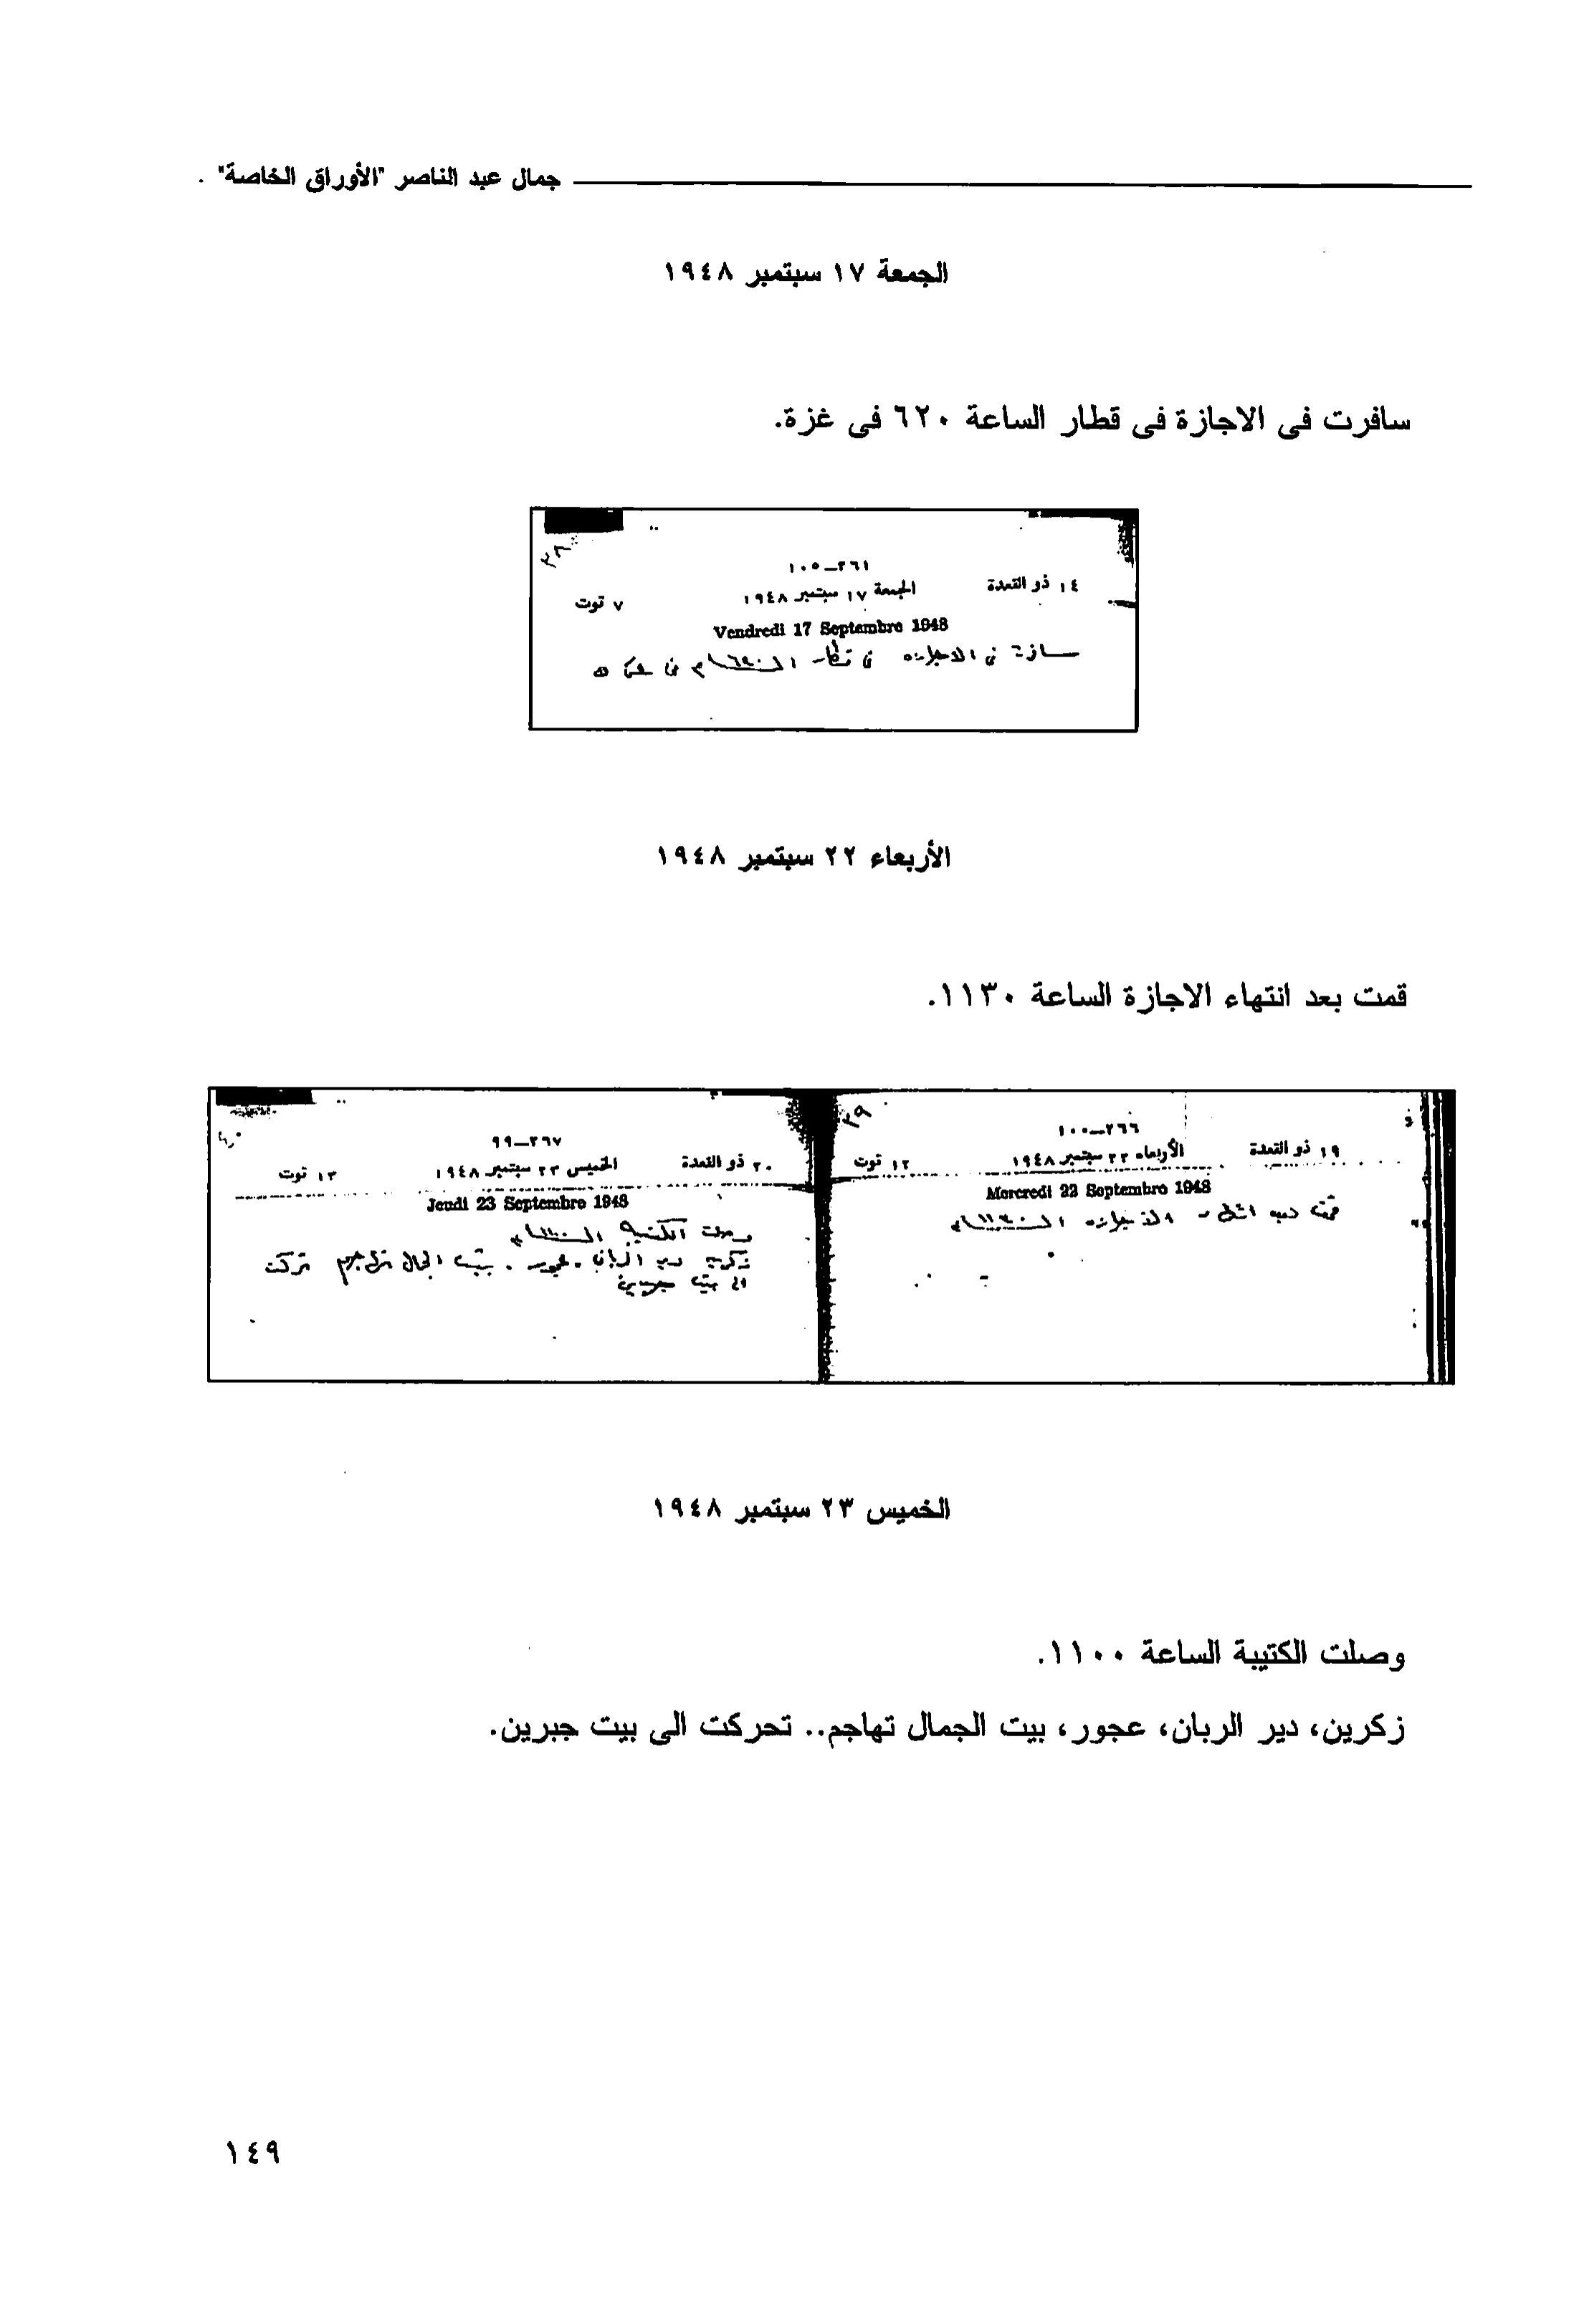 جمال عبد الناصر "الأوراق الخاصة" .
الجمعة ١٧ سبتمبر ١٩٤٨
سافرت فى الاجازة فى قطار الساعة ٦٢٠ فى غزة.
٣٨
٢٦١-١٠٥
١٤ ذو القعدة الجمعة ١٧ سبتمبر ١٩٤٨ ٧ توت
Vendredi 17 Septembre 1948
سافرت فى الاجازه فى قطار
الأربعاء ٢٢ سبتمبر ١٩٤٨
قمت بعد انتهاء الاجازة الساعة ١١٣٠.
٣٩
٢٦٦-١٠٠
١٩ ذو القعدة الأربعاء ٢٢ سبتمبر ١٩٤٨ ١٢ توت
Mercredi 22 Septembre 1948
قمت بعد انتهاء الاجازه
٤٠
٢٦٧-٩٩
٢٠ ذو القعدة الخميس ٢٣ سبتمبر ١٩٤٨ ١٣ توت
Jeudi 23 Septembre 1948
وصلت الكتيبة
زكرين دير الربان . عجور . بيت الجمال تهاجم تحركت
الى بيت جبرين
الخميس ٢٣ سبتمبر ١٩٤٨
وصلت الكتيبة الساعة ١١٠٠.
زكرين، دير الربان، عجور، بيت الجمال تهاجم.. تحركت الى بيت جبرين.
١٤٩